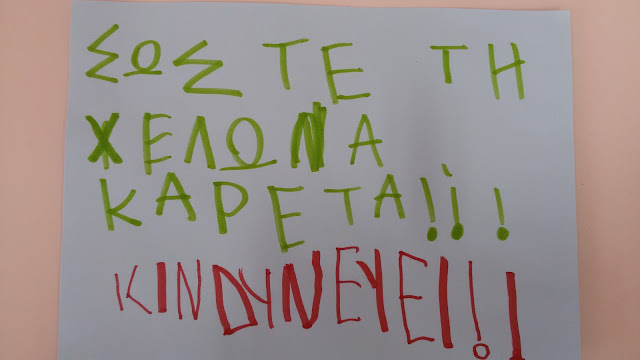 ΣΩΣΤΕ ΤΗ
ΧΕΛΩΝΑ
ΚΑΡΕΤΑ!!!
ΚΙΝΔΥΝΕΥΕΙ!!!